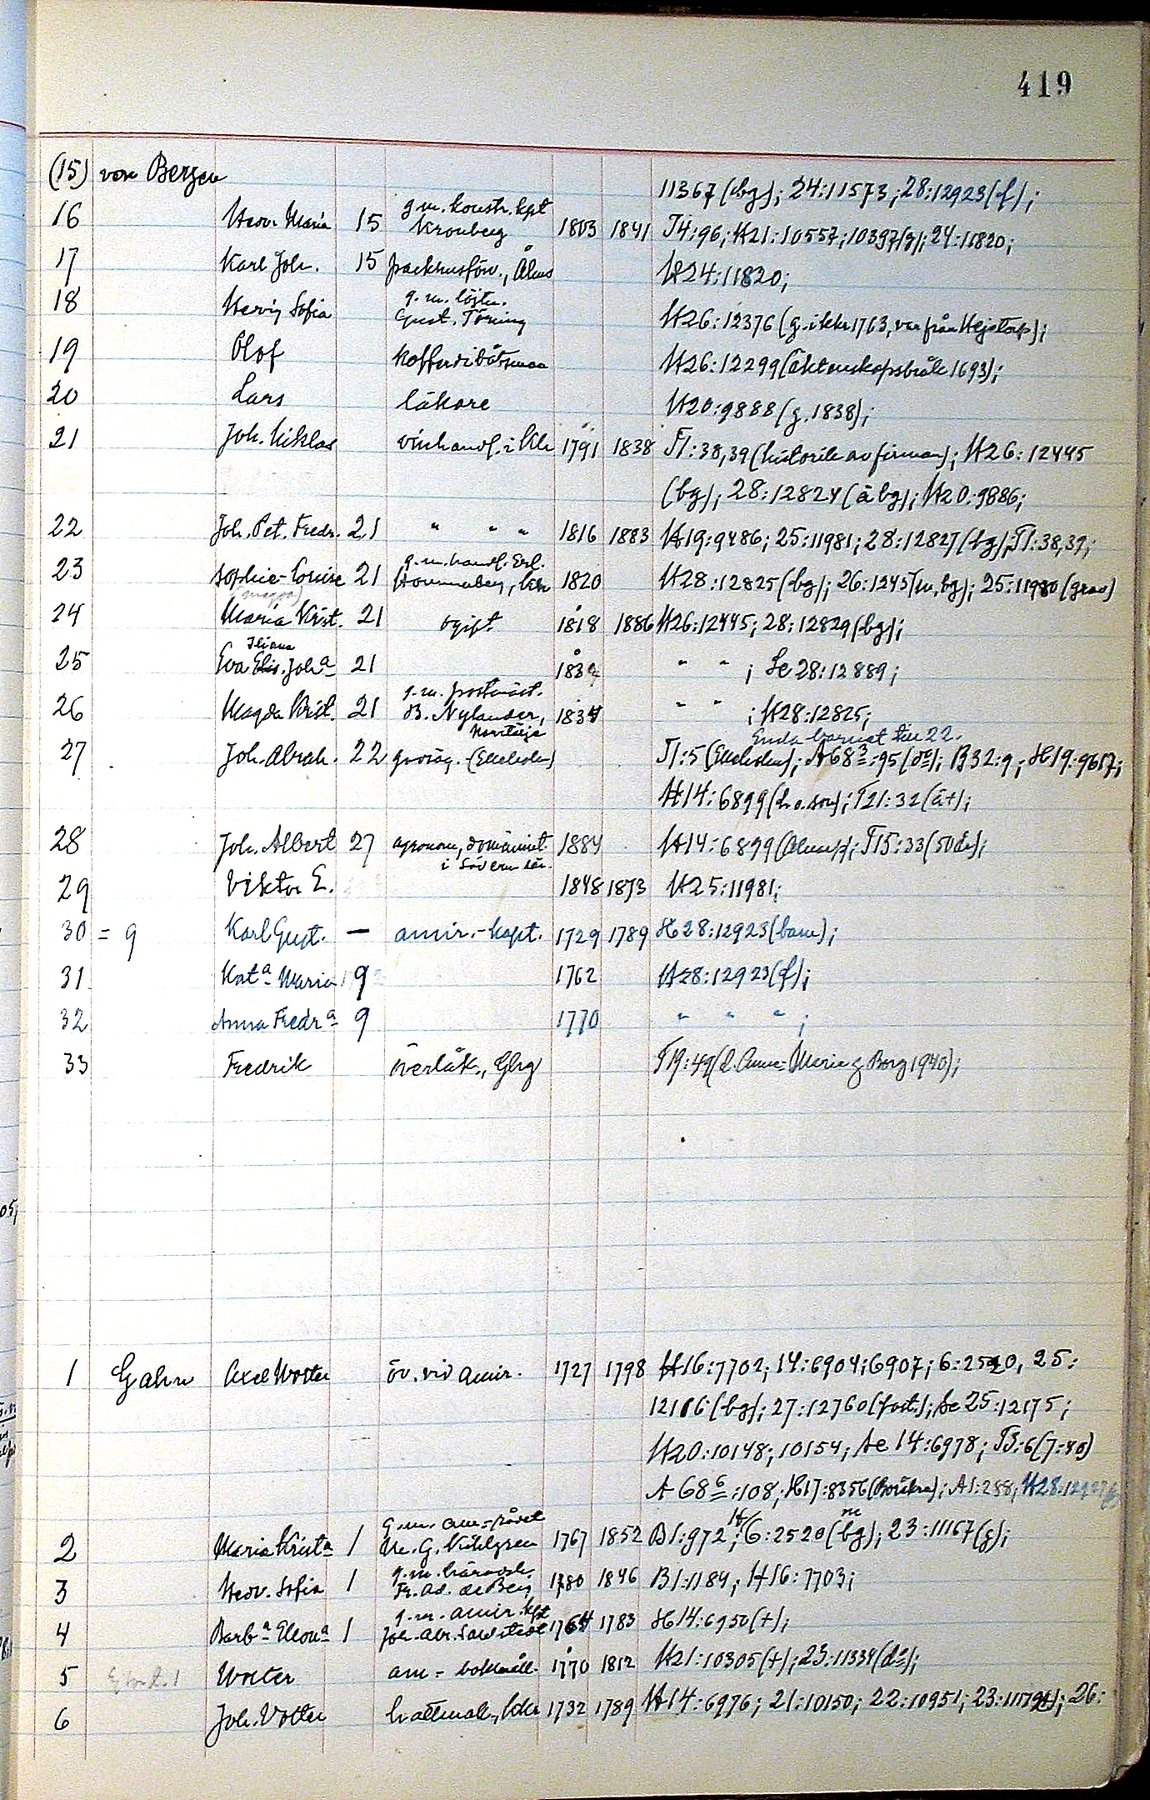 419
(15) von Bergen 11367 (bg); 24:11573; 28:12923 (f);
16 Hedv. Maria 15 g.m. konstr. kpt Kronberg 1803 1841 T4:96; H21:10557; 10397(g); 24:11820;
17 Karl Joh. 15 packhusförv., Åhus H24:11820;
18 Hedvig Sofia g.m. löjtn. Gust. Töring H26:12376 (g. i kkr 1763, var från
19 Olof kofferdibåtsman H26:12299 (äktenskapsbråk 1693);
20 Lars läkare H20:9888 (g. 1838);
21 Joh. Niklas vinhandl. i Kkr 1791 1838 T1:38,39 (historik av firman); H26:12445
(bg); 28:12824 (ä bg); H20:9886;
22 Joh. Pet. Fredr. 21 " " " 1816 1883 H19:9486; 25:11981; 28:12827 (bg), T1:38,39;
23 Sophie-Louise 21 g.m. handl. Erl. 1820 H28:12825 (bg); 26:12457 (m, bg); 25:11980 (grav)
24 Maria Krist. 21 ogift 1818 1886 H26:12445; 28:12829 (bg);
25 Eva Elis. Joh:a 21 183 " " ; Se 28:12889;
26 Magda Krist. 21 g.m. postmäst. B. Nylander, Norrtälje 1834 " " ; H28:12825;
Enda barnet till 22.
27 Joh. Abrah. 22 godsäg. (Elleholm) T1:5 (Elleholm); A68 3:95 (d:o); B32:9; H19:9617;
H14:6899 (h. o. son); T21:32 (a+);
28 Joh. Albert 27 agronom, domänint. i Söderm. län. 1884 H14:6899 ; T15:33 (50 år);
29 Viktor E. 1848 1873 H25:11981;
30 = 9 Karl Gust. — amir.-kapt. 1729 1789 H28:12923 (barn);
31 Kat:a Maria 9 1762 H28:12923 (f);
32 Anna Fredr:a 9 1770 " " " ;
33 Fredrik överläk., Gbg T19:49 (d. Anne-Marie g. Borg 1940);
1 Gahn Axel Wolter öv. vid amir. 1727 1798 H16:7702; 14:6904; 6907; 6:2520, 25:
12116 (bg); 27:12760 (fast.); Se 25:12175;
H20:10148; 10154; Se 14:6978; T3:6 (7:80)
A 68 6:108; H17:8356 ; A1:288; H28:
2 Maria Krist:a 1 g.m. am-rådet M. G. Kihlgren 1767 1852 B1:972; H6:2520 (bg); 23:11167 (g);
3 Hedv. Sofia 1 g.m. häradsh. Fr. Ad. de Beij 1780 1846 B1:1184; H16:7703;
4 Barb:a Eleon:a 1 g.m. amir. kpt Joh. Abr. 1764 1783 H14:6950 (+);
5 Wolter am-bokhåll. 1770 1812 H21:10305 (+); 25:11334 (d:o);
6 Joh. Volter hattmak., Kkr 1732 1789 H14:6976; 21:10150; 22:10951; 23: ; 26: